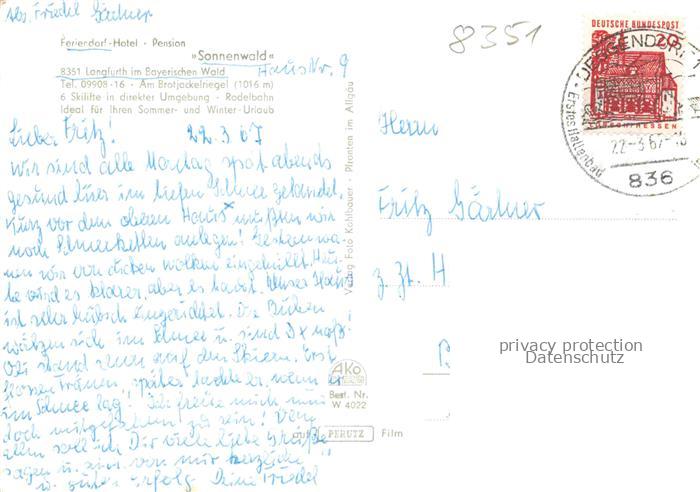 Abs. Friedel Gärtner
Feriendorf-Hotel - Pension
»Sonnenwald«
8351 Langfurth im Bayerischen Wald
Haus Nr. 9
Tel. 09908-16 - Am Brotjackelriegel (1016 m)
6 Skilifte in direkter Umgebung - Rodelbahn
Ideal für Ihren Sommer- und Winter-Urlaub
Lieber Fritz! 22.3.67
Wir sind alle Montag spät abends
gesund hier im tiefen Schnee gelandet.
Kurz vor dem oberen Haus mußten wir
noch Schneeketten anlegen! Gestern wa-
ren wir von dicken Wolken eingehüllt. Heu-
te wird es klarer, aber es taut. Unser Haus
ist sehr hübsch eingerichtet. Die Buben
wälzen sich im Schnee u. sind naß!
Oli stand nun auf den Skiern. Erst
flossen Tränen, später lachte er, wenn er
im Schnee lag! Ich freue mich nun
doch mitgefahren zu sein! Von
allen soll ich Dir viele liebe Grüße
sagen u. von mir herzliche
u. guten Erfolg Deine Friedel
Verlag Foto Kohlbauer - Pfronten im Allgäu
Ako
Best. Nr.
W 4022
auf PERUTZ Film
8351
DEUTSCHE BUNDESPOST
20
HESSEN
DEGGENDORF 1
Erstes Hallenbad
22-3.67-18
836
Herrn
Fritz Gärtner
z. Zt. H
privacy protection
Datenschutz